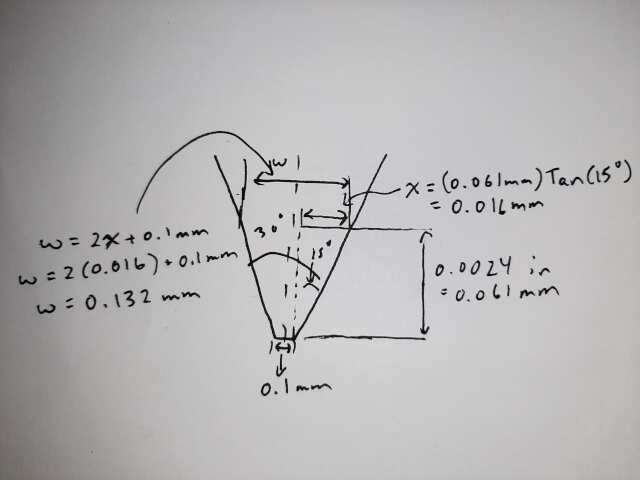 w
x = (0.061mm) Tan(15°)
= 0.016mm
w = 2x + 0.1mm
w = 2(0.016) + 0.1mm
w = 0.132 mm
30°
15°
0.0024 in
= 0.061 mm
0.1mm